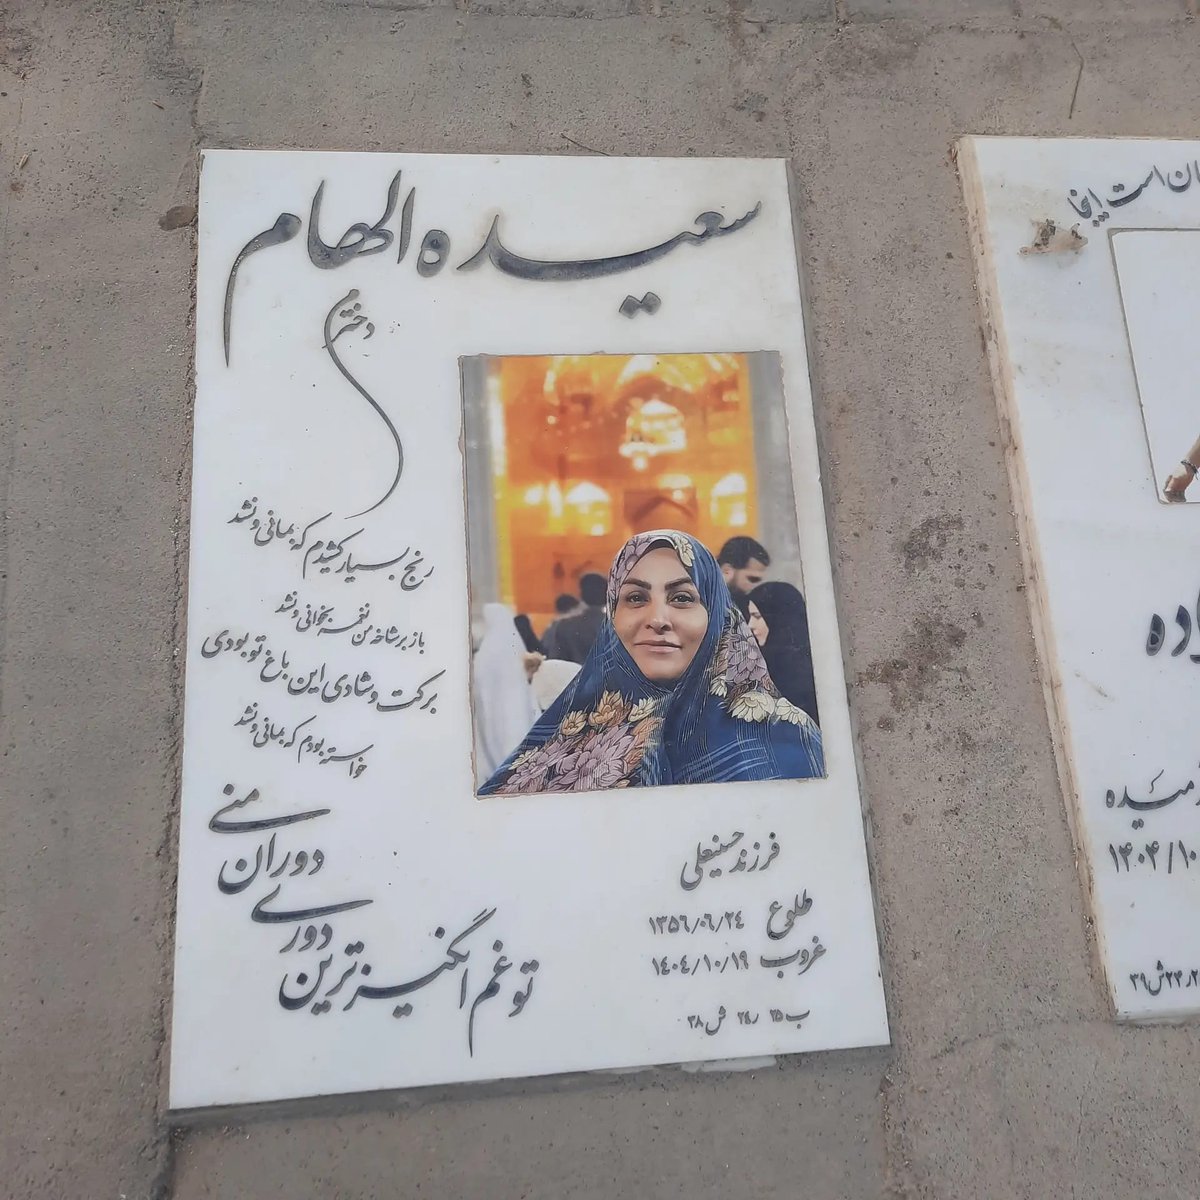 سعیده الهام
دخترم
رنج بسیار کشیدم که بمانی و نشد
باز بر شاخه من نغمه بخوانی و نشد
برکت و شادی این باغ تو بودی
خواسته بودم که بمانی و نشد
تو غم انگیزترین
دوری
دوران
منی
فرزند حسینعلی
طلوع ۱۳۵۶/۰۶/۲۴
غروب ۱۴۰۴/۱۰/۱۹
ب ۲۵ ر ۲۴ ش ۳۸
است اینجا
۱۴۰۴/۱۰
ر ۲۴ ش ۳۹